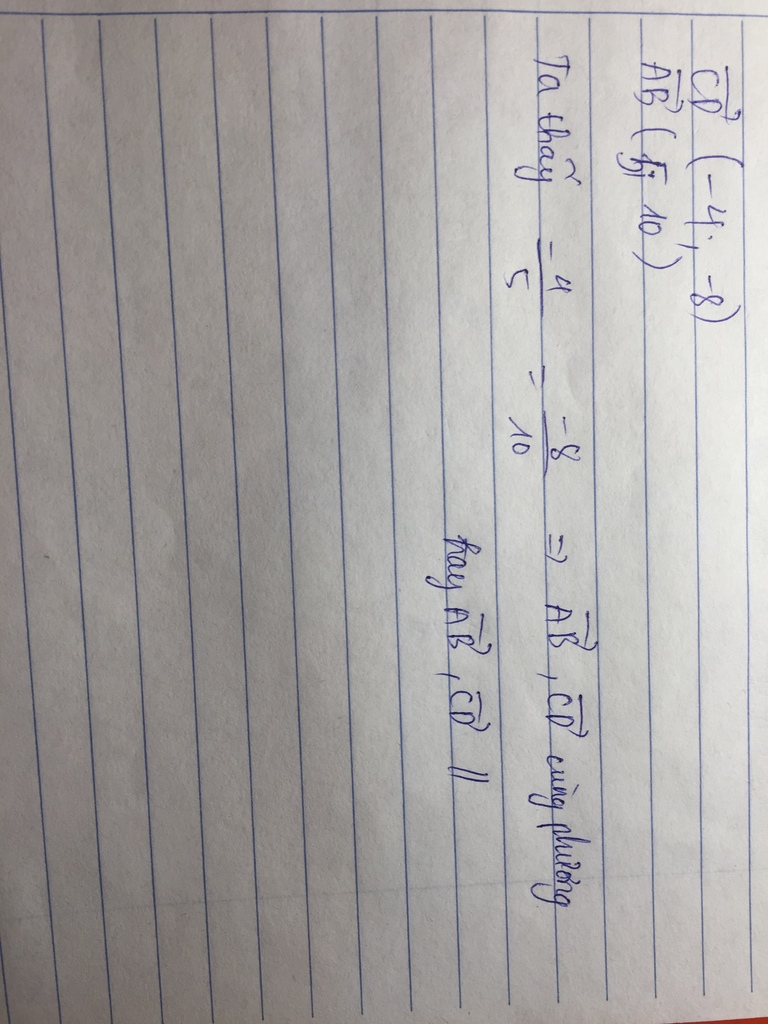 CD (-4; -8)
AB (5; 10)
Ta thấy -4/5 = -8/10 => AB, CD cùng phương
hay AB, CD //